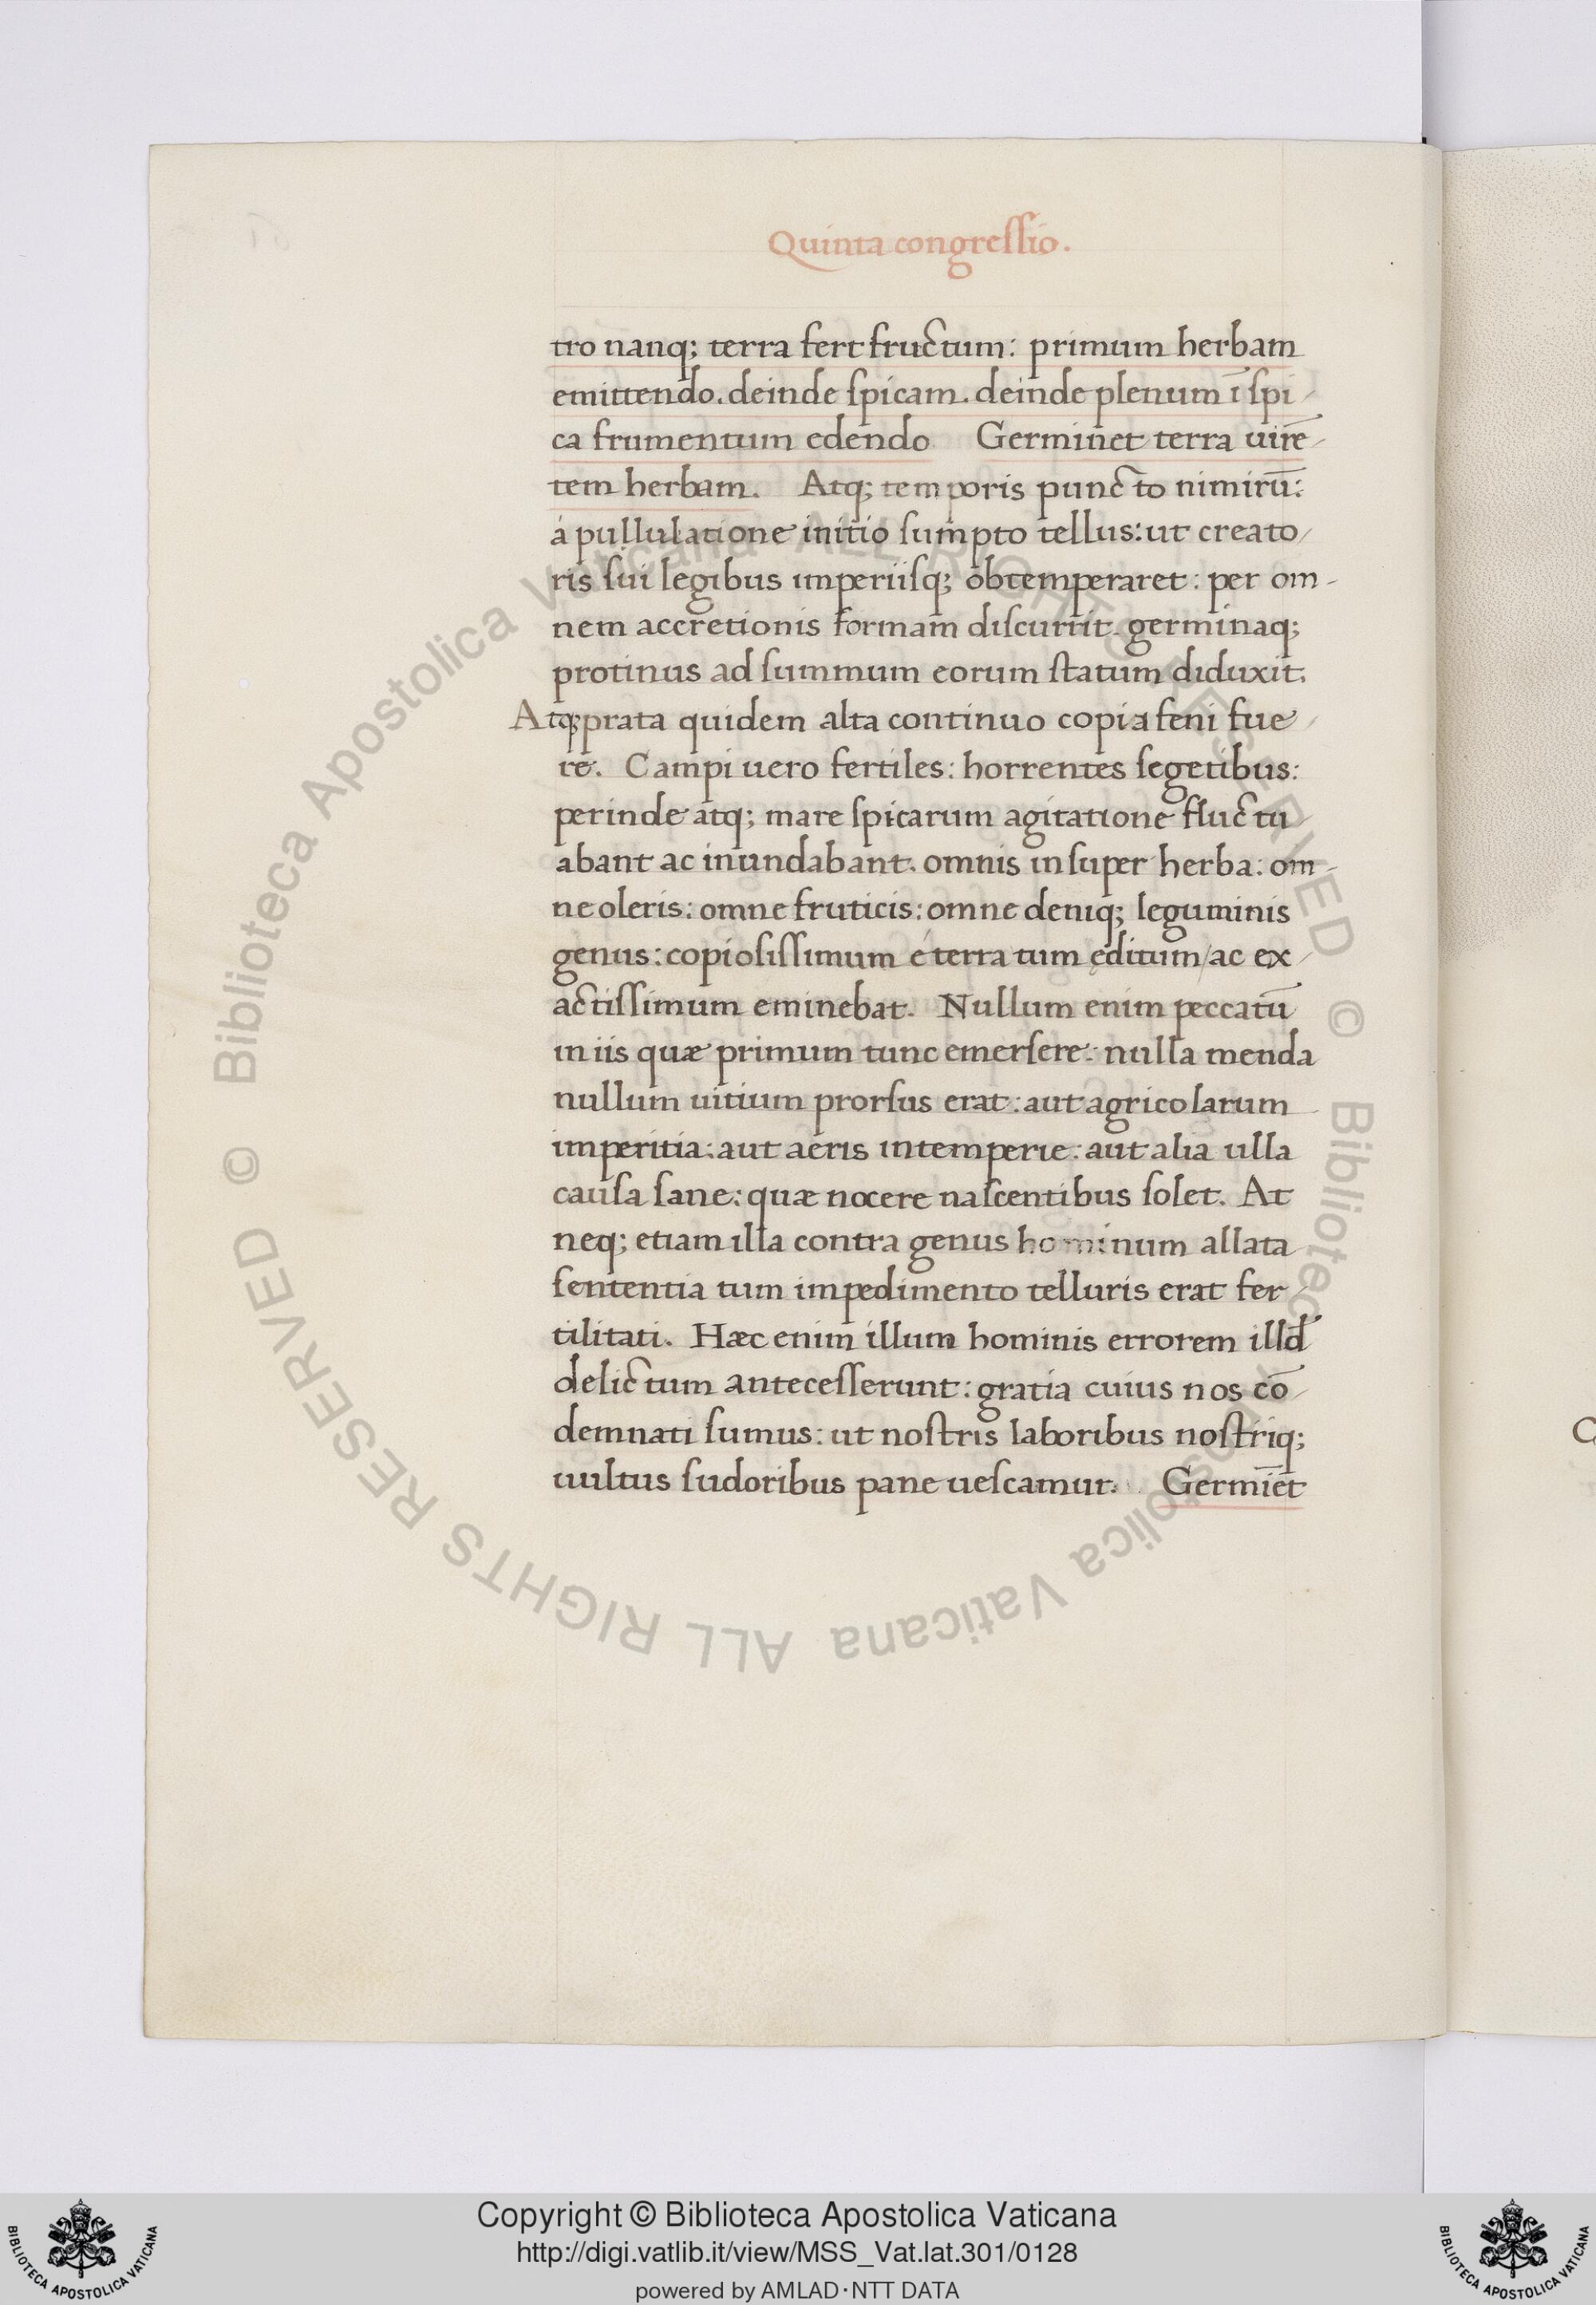 Quinta congressio.
tro nanq; terra fert fructum: primum herbam
emittendo. deinde spicam. deinde plenum ī spi
ca frumentum edendo Germinet terra uirē
tem herbam. Atq; temporis puncto nimirū:
á pullulatione initio sumpto tellus: ut creato
ris sui legibus imperiisq; obtemperaret: per om-
nem accretionis formam discurrit. germinaq;
protinus ad summum eorum statum diduxit.
Atq; prata quidem alta continuo copia feni fue
re. Campi uero fertiles: horrentes segetibus:
perinde atq; mare spicarum agitatione fluctu
abant ac inundabant. omnis insuper herba: om-
ne oleris: omne fruticis: omne deniq; leguminis
genus: copiosissimum é terra tum ęditum/ac ex
actissimum eminebat. Nullum enim peccatū
in iis quæ primum tunc emersere: nulla menda
nullum uitium prorsus erat: aut agricolarum
imperitia: aut aeris intemperie: aut alia ulla
causa sane: quæ nocere nascentibus solet. At
neq; etiam illa contra genus hominum allata
sententia tum impedimento telluris erat fer
tilitati. Hæc enim illum hominis errorem illd̄
delictum antecesserunt: gratia cuius nos cō
demnati sumus: ut nostris laboribus nostriq;
uultus sudoribus pane uescamur. Germīet
Biblioteca Apostolica Vaticana ALL RIGHTS RESERVED ©
Biblioteca Apostolica Vaticana ALL RIGHTS RESERVED ©
Copyright © Biblioteca Apostolica Vaticana
http://digi.vatlib.it/view/MSS_Vat.lat.301/0128
powered by AMLAD·NTT DATA
BIBLIOTECA APOSTOLICA VATICANA
BIBLIOTECA APOSTOLICA VATICANA